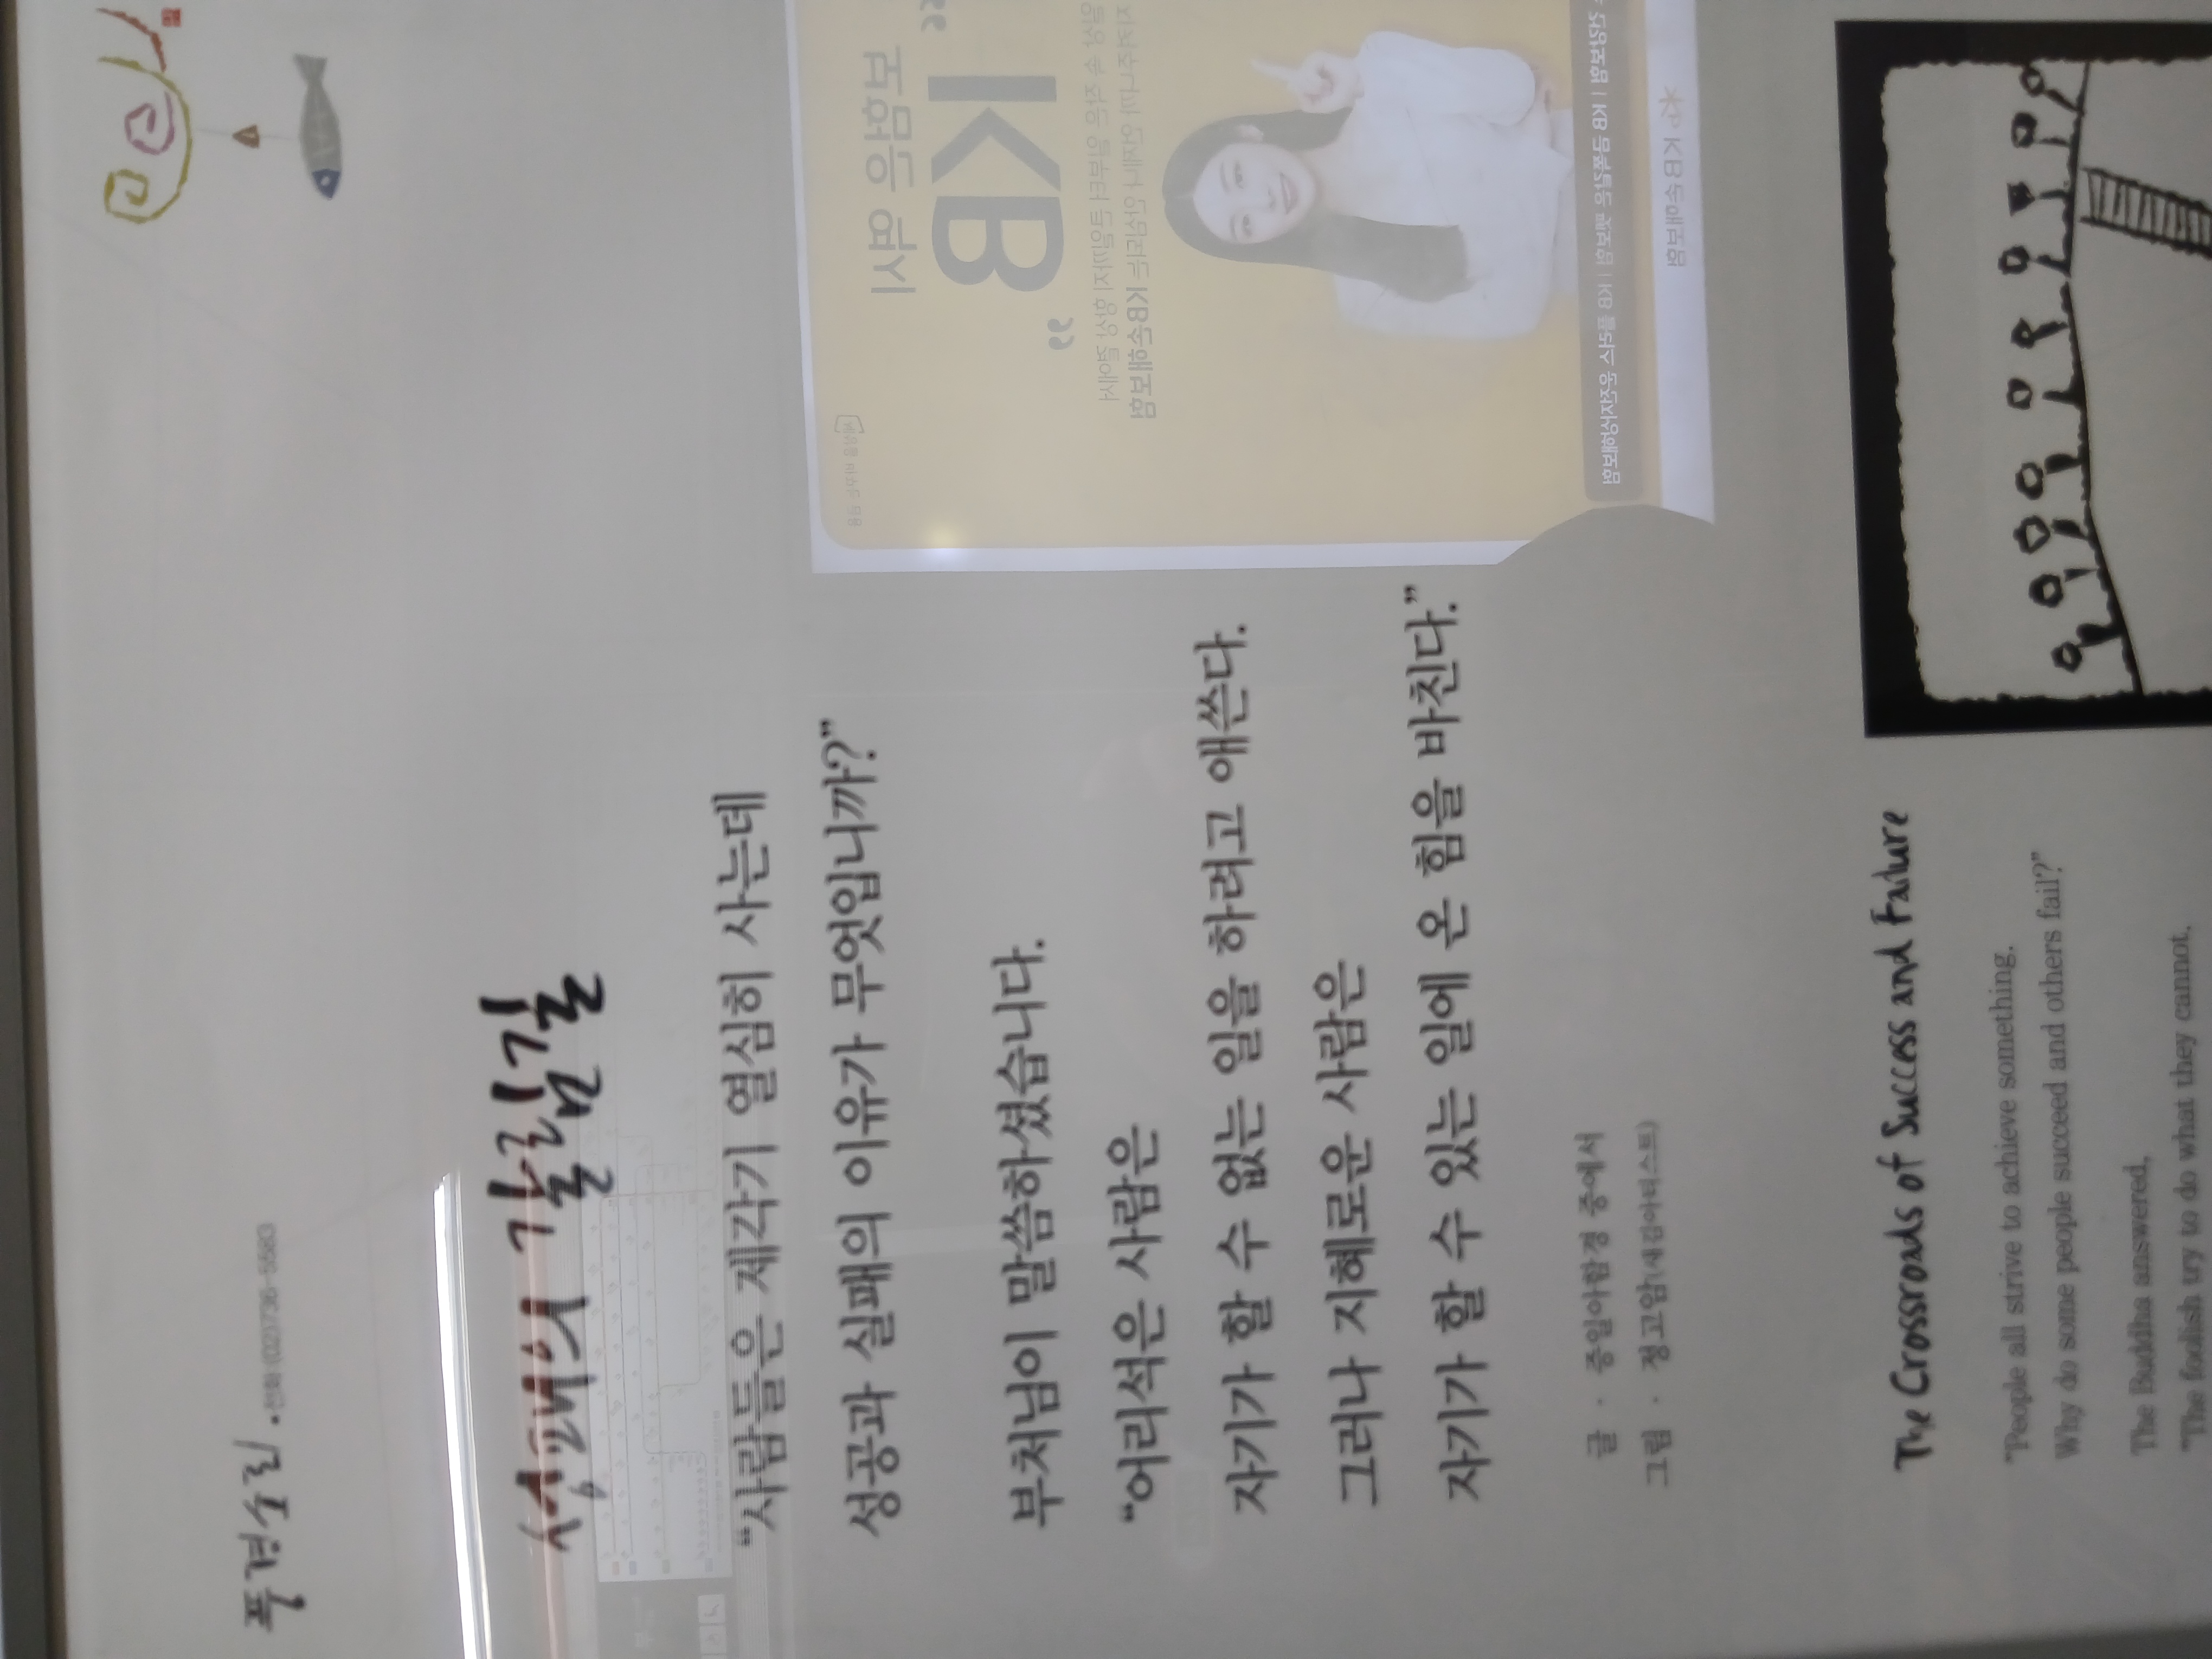 풍경소리 • 전화 (02)736-5583
성패의 갈림길
“사람들은 제각기 열심히 사는데
성공과 실패의 이유가 무엇입니까?”
부처님이 말씀하셨습니다.
“어리석은 사람은
자기가 할 수 없는 일을 하려고 애쓴다.
그러나 지혜로운 사람은
자기가 할 수 있는 일에 온 힘을 바친다.”
글 · 증일아함경 중에서
그림 · 정고암(새김아티스트)
The Crossroads of Success and Failure
“People all strive to achieve something.
Why do some people succeed and others fail?”
The Buddha answered,
“The foolish try to do what they cannot.
“
보험은 역시
KB
”
KB손해보험